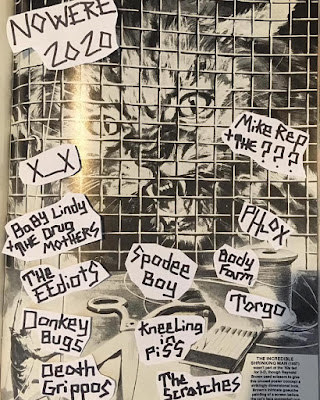 NOWERE
2020
MIKE REP
+ THE ???
X_X
BABY LINDY
+ THE DRUG
MOTHERS
PHLOX
THE
EEDIOTS
SPODEE
BOY
BODY
FARM
TORGO
DONKEY
BUGS
KNEELING
IN
PISS
DEATH
GRIPPOS
THE
SCRATCHES
THE INCREDIBLE
SHRINKING MAN (1957)